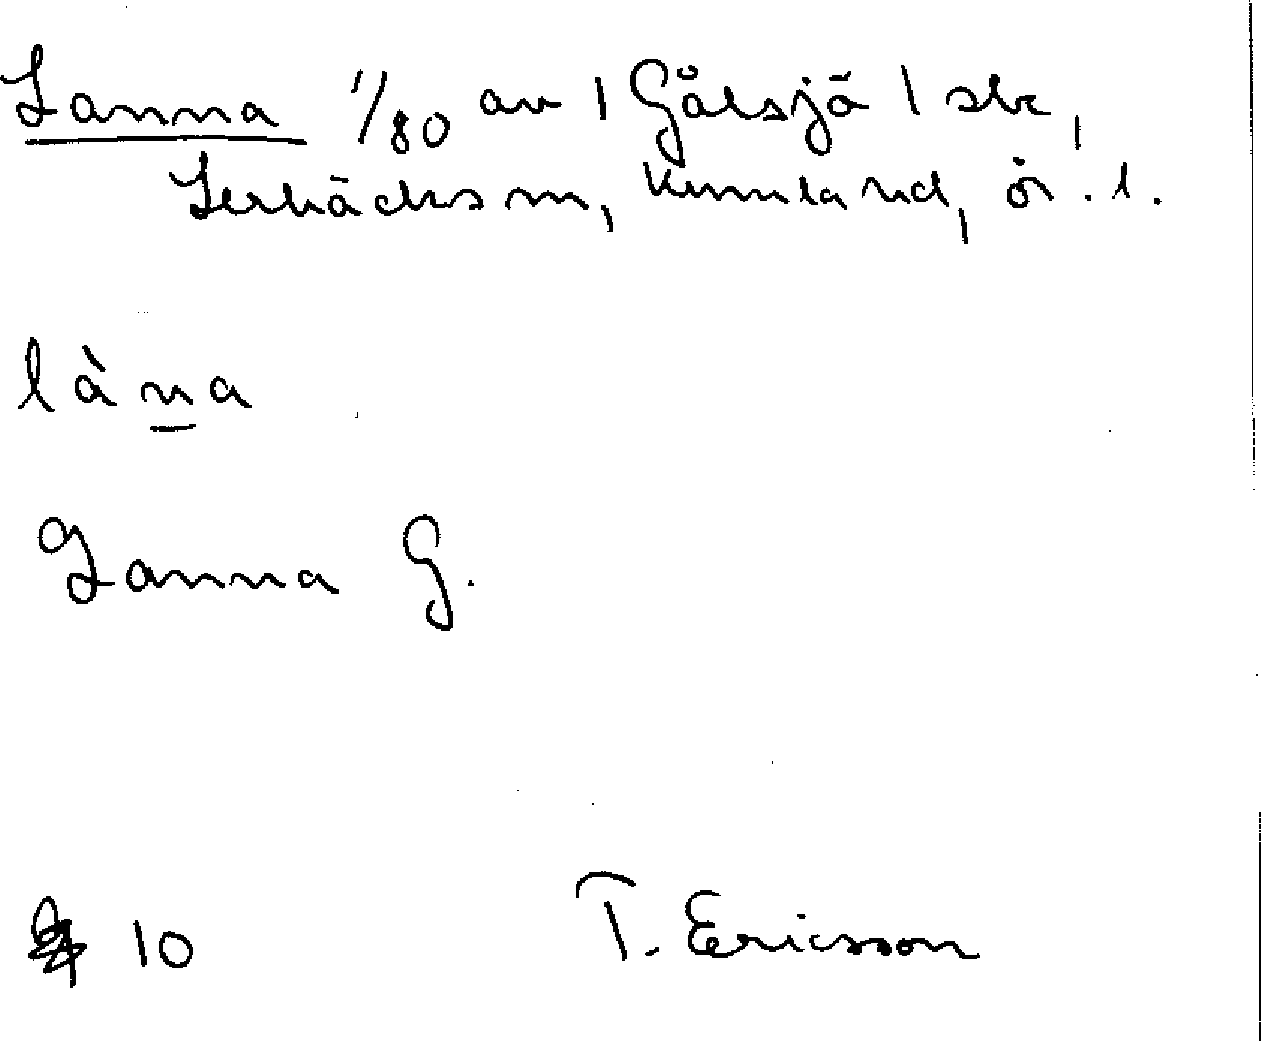 Lanna 1/80 av 1 Gålsjö 1 sbr,
Lerbäcks sn, Kumla hd, ör. l.
làna
Lanna G.
10 T. Ericsson